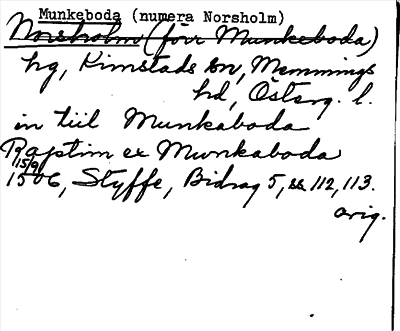 Munkeboda (numera Norsholm)
Norsholm (förr Munkeboda)
hg, Kimstads sn, Memmings
hd, Österg. l.
in till Munkaboda
Raptim ex Munkaboda
15/9
1506, Styffe, Bidrag 5, ss. 112, 113.
orig.